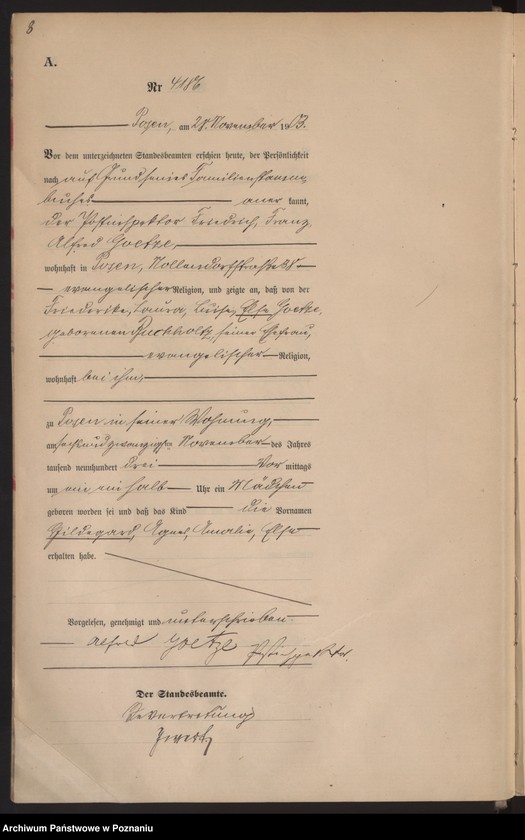 8
A.
Nr 4186
Posen, am 28. November 1903.
Vor dem unterzeichneten Standesbeamten erschien heute, der Persönlichkeit
nach auf Grund seines Familienstamm
buches anerkannt,
der Postinspektor Friedrich, Franz,
Alfred Goetze,
wohnhaft in Posen, Nollendorfstraße
evangelischer Religion, und zeigte an, daß von der
Friederike, Laura, Luise, Else Goetze,
geborenen Buchholtz, seiner Ehefrau,
evangelischer Religion,
wohnhaft bei ihm,
zu Posen in seiner Wohnung,
am sechsundzwanzigsten November des Jahres
tausend neunhundert drei Vor mittags
um ein einhalb Uhr ein Mädchen
geboren worden sei und daß das Kind die Vornamen
Hildegard, Agnes, Amalie, Else
erhalten habe.
Vorgelesen, genehmigt und unterschrieben.
Alfred Goetze Postinspektor.
Der Standesbeamte.
In Vertretung
Archiwum Państwowe w Poznaniu